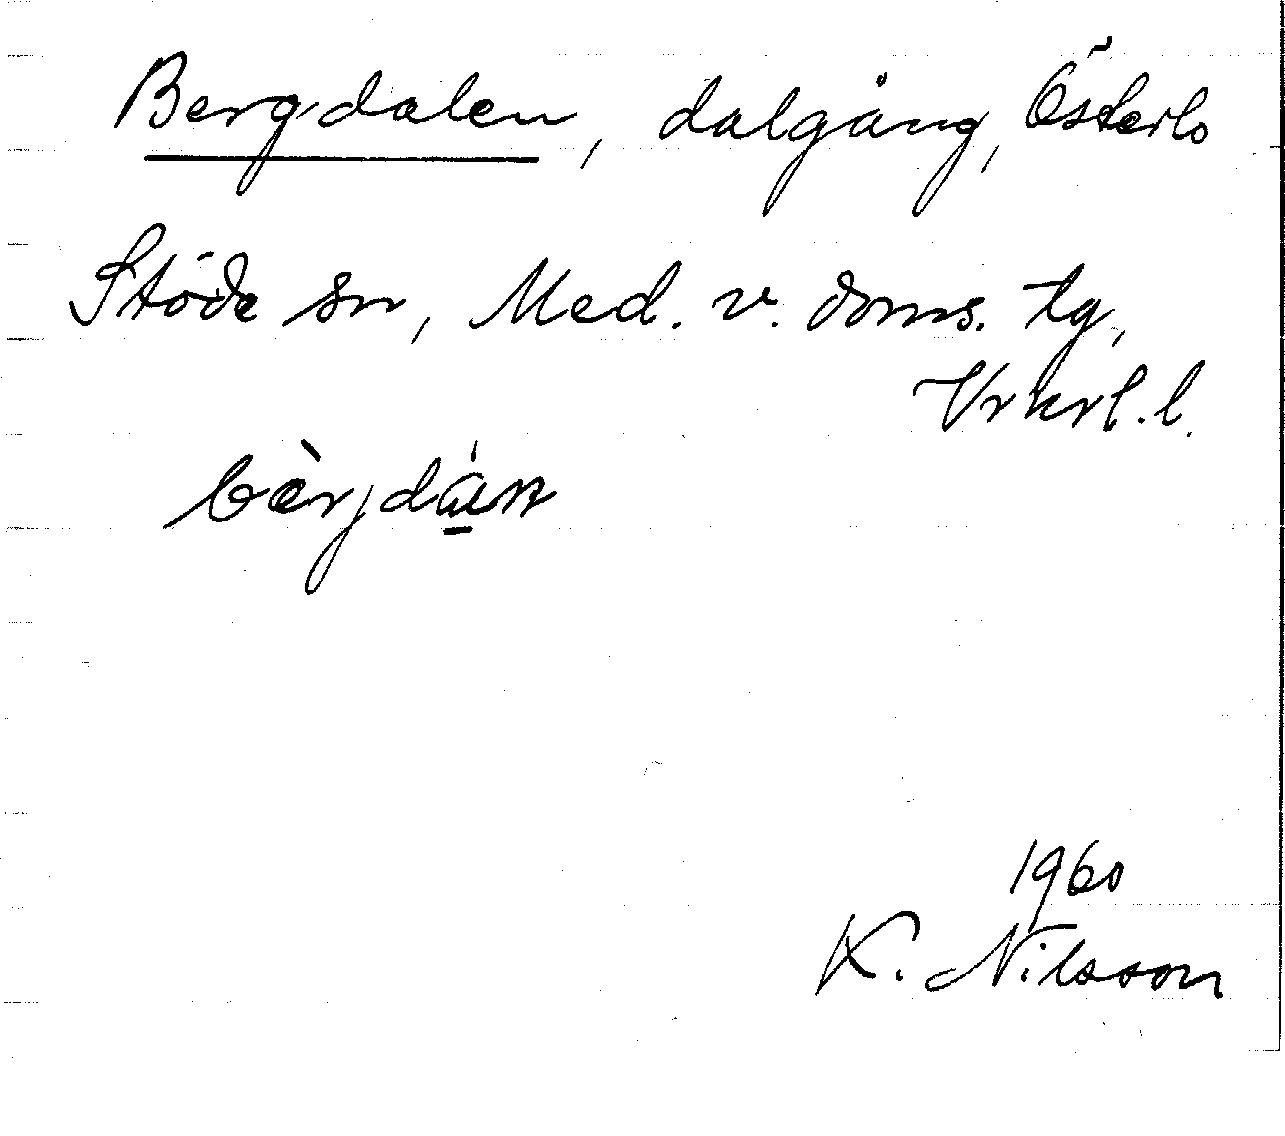 Bergdalen, dalgång, Österlo
Stöde sn, Med. v. doms. tg,
Vrnrl. l.
bærjdán
1960
K. Nilsson